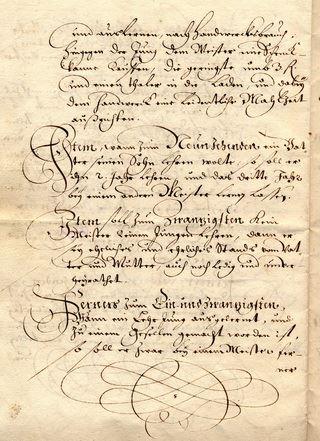 und auslernen, nach Handwerckebrauch,
hingegen der Jung dem Meister ein
Kanne die geringste umb 3. R
und einen thaler in die Laden, und dabey
dem Handwerck eine leidentliche Mahlzeit
außrichten.
Item, wann zum Neünzehenden ein Vat-
ter seinen Sohn lehren wolte, so soll er
ihn 2 Jahr lehren, und das dritte Jahr
bey einem andern Meister lernen lassen.
Item soll zum Zwanzigsten Kein
Meister keinen Jungen lehren, dann er
sey ehrliches und ehelichs Stands vom Vat-
ter und Mutter, auch noch ledig und unver-
heyrathet.
Ferners zum Ein und zwanzigsten,
Wann ein Lehr Jung außgelernet, und
zu einem Gesellen gemacht worden ist,
so soll er zwar bey einem Meister fer-
ner